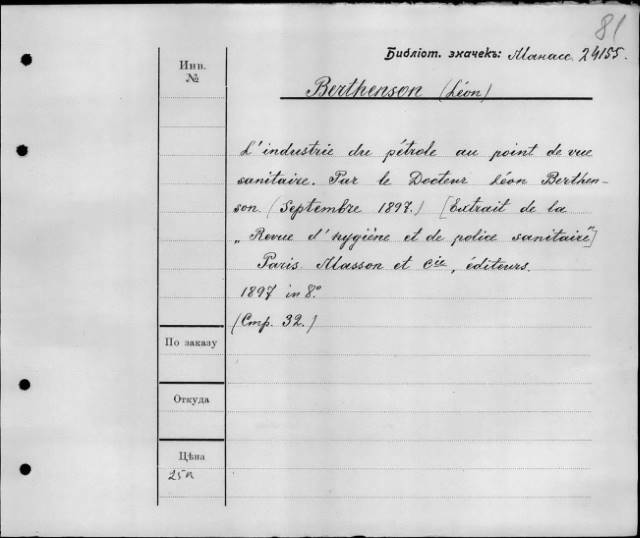 81
Библіот. значекъ: Манасс. 24155.
Инв.
№
Berthenson (Léon)
L'industrie du pétrole au point de vue
sanitaire. Par le Docteur Léon Berthen-
son. (Septembre 1897.) [Extrait de la
„Revue d'hygiène et de police sanitaire"]
Paris. Masson et Cie, éditeurs.
1897 in 8°.
(Стр. 32.)
По заказу
Откуда
Цѣна